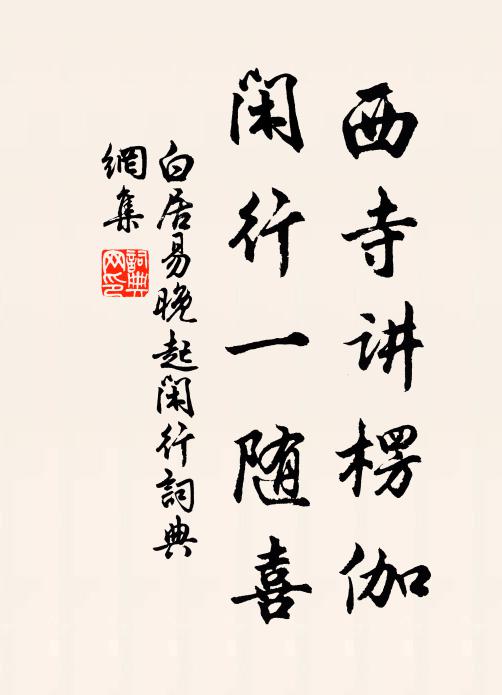 西寺讲楞伽
闲行一随喜
白居易晚起闲行詞典
網集
詞典
网印